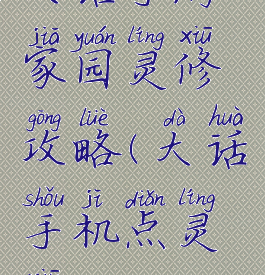 jiā yuán líng xiū
家园灵修
gōng lüè dà huà
攻略(大话
shǒu jī diǎn líng
手机点灵